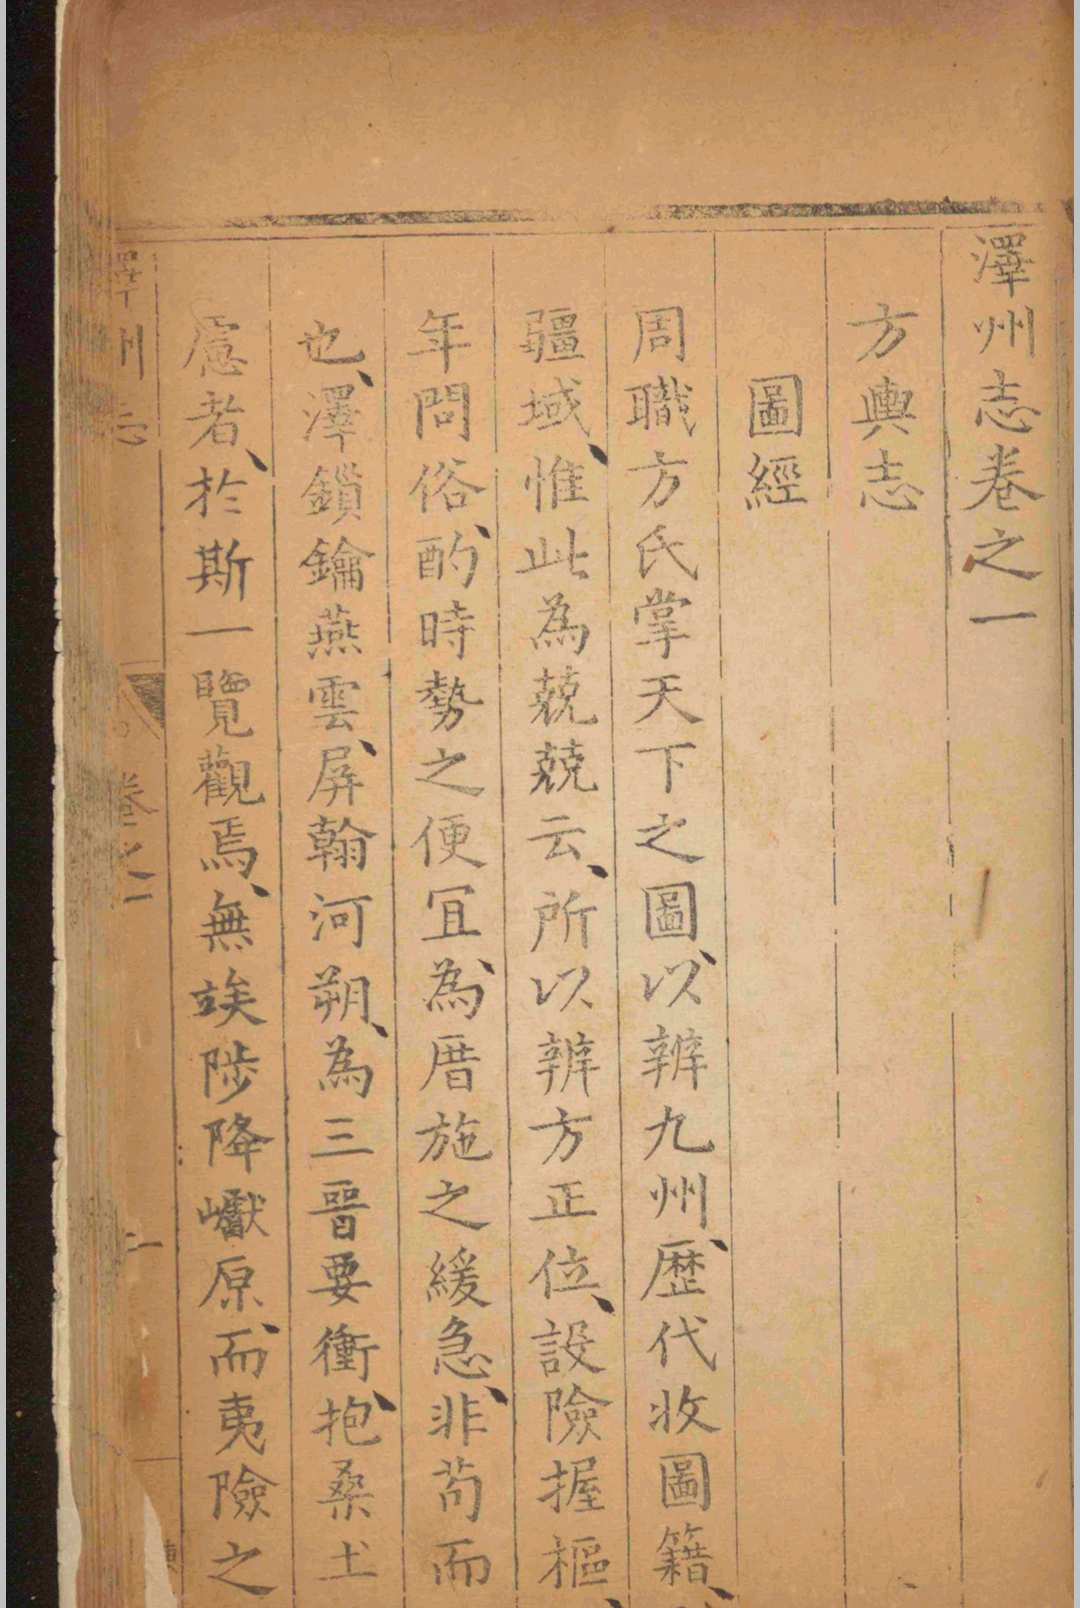 澤州志卷之一
方輿志
圖經
周職方氏掌天下之圖、以辨九州、歷代收圖籍、
疆域、惟此為兢兢云、所以辨方正位、設險握樞、
年問俗、酌時勢之便宜、為厝施之緩急、非苟而
也、澤鎖鑰燕雲、屏翰河朔、為三晉要衝、抱桑土
慮者、於斯一覽觀焉、無竢陟降巘原、而夷險之
澤州志 卷之一 一